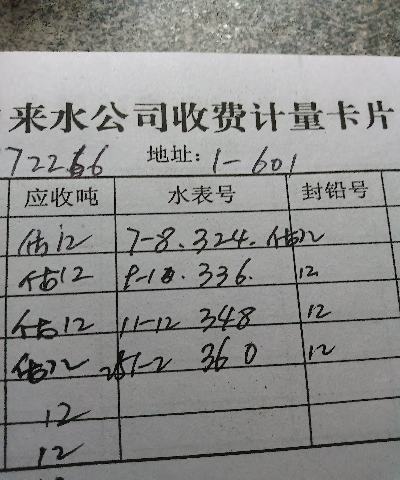 来水公司收费计量卡片
72266 地址: 1-601
应收吨 水表号 封铅号
估12 7-8. 324. 估12
估12 9-10. 336. 12
估12 11-12 348 12
估12 1-2 360 12
12
12